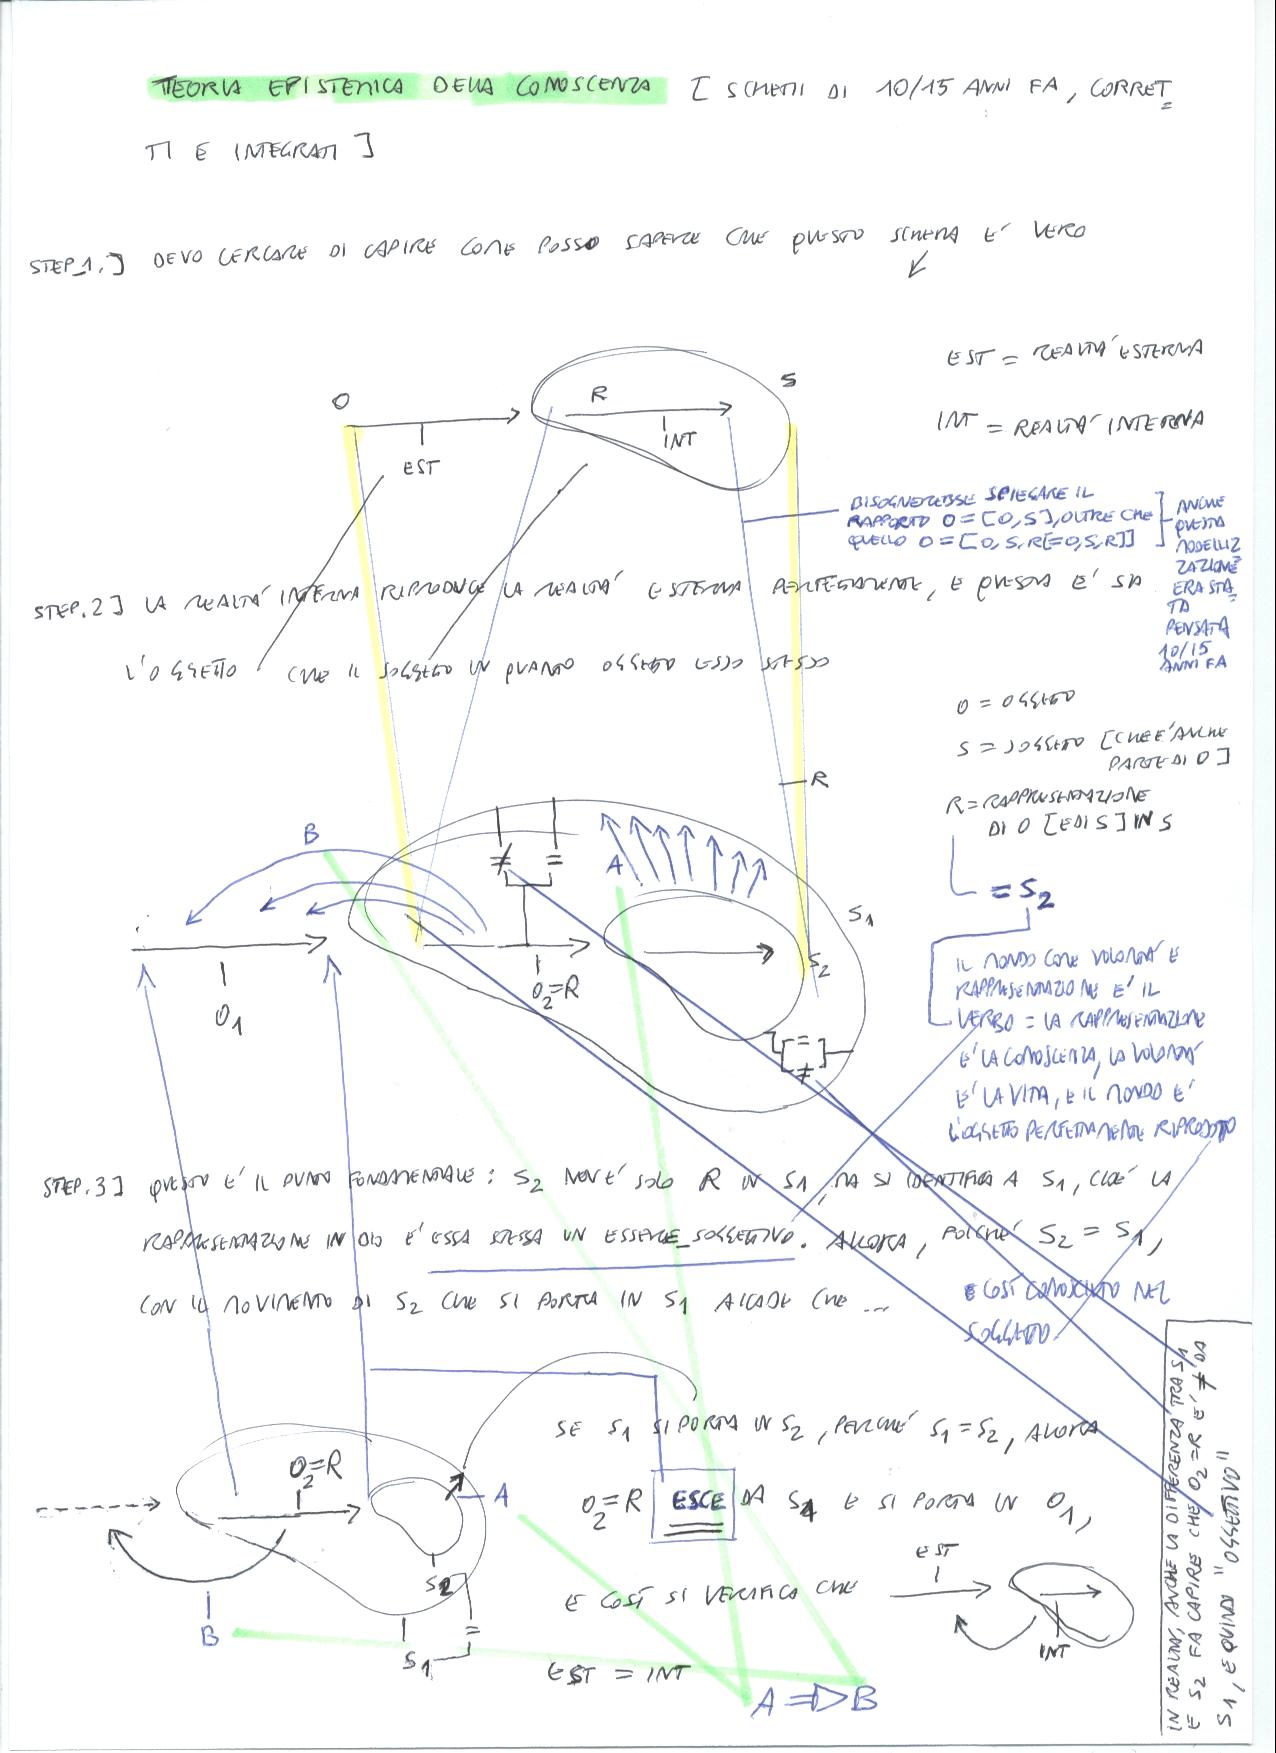 TEORIA EPISTEMICA DELLA CONOSCENZA [SCHEMI DI 10/15 ANNI FA, CORRET
TI E INTEGRATI]
STEP.1.] DEVO CERCARE DI CAPIRE COME POSSO SAPERE CHE QUESTO SCHEMA E' VERO
EST = REALTA' ESTERNA
INT = REALTA' INTERNA
O
EST
R
INT
S
BISOGNEREBBE SPIEGARE IL
RAPPORTO O = [O, S], OLTRE CHE
QUELLO O = [O, S, R[=O, S, R]]
ANCHE
QUESTA
MODELLIZ
ZAZIONE
ERA STA
TA
PENSATA
10/15
ANNI FA
STEP.2] LA REALTA' INTERNA RIPRODUCE LA REALTA' ESTERNA PERFETTAMENTE, E QUESTA E' SIA
L'OGGETTO CHE IL SOGGETTO IN QUANTO OGGETTO ESSO STESSO
O = OGGETTO
S = SOGGETTO [CHE E' ANCHE
PARTE DI O]
R = RAPPRESENTAZIONE
DI O [E DI S] IN S
= S2
R
B
≠ =
A
S1
S2
O2=R
O1
=
≠
IL MONDO COME VOLONTA' E
RAPPRESENTAZIONE E' IL
VERBO = LA RAPPRESENTAZIONE
E' LA CONOSCENZA, LA VOLONTA'
E' LA VITA, E IL MONDO E'
L'OGGETTO PERFETTAMENTE RIPRODOTTO
E COSÌ CONOSCIUTO NEL
SOGGETTO
STEP.3] QUESTO E' IL PUNTO FONDAMENTALE: S2 NON E' SOLO R IN S1, MA SI IDENTIFICA A S1, CIOE' LA
RAPPRESENTAZIONE IN DIO E' ESSA STESSA UN ESSERE SOGGETTIVO. ALLORA, POICHE' S2 = S1,
CON IL MOVIMENTO DI S2 CHE SI PORTA IN S1 ACCADE CHE ...
SE S1 SI PORTA IN S2, PERCHE' S1 = S2, ALLORA
O2=R ESCE DA S1 E SI PORTA IN O1,
E COSÌ SI VERIFICA CHE
EST
INT
EST = INT
O2=R
A
S2
=
S1
B
A => B
IN REALTA', ANCHE LA DIFFERENZA TRA S1
E S2 FA CAPIRE CHE O2=R E' ≠ DA
S1, E QUINDI "OGGETTIVO"